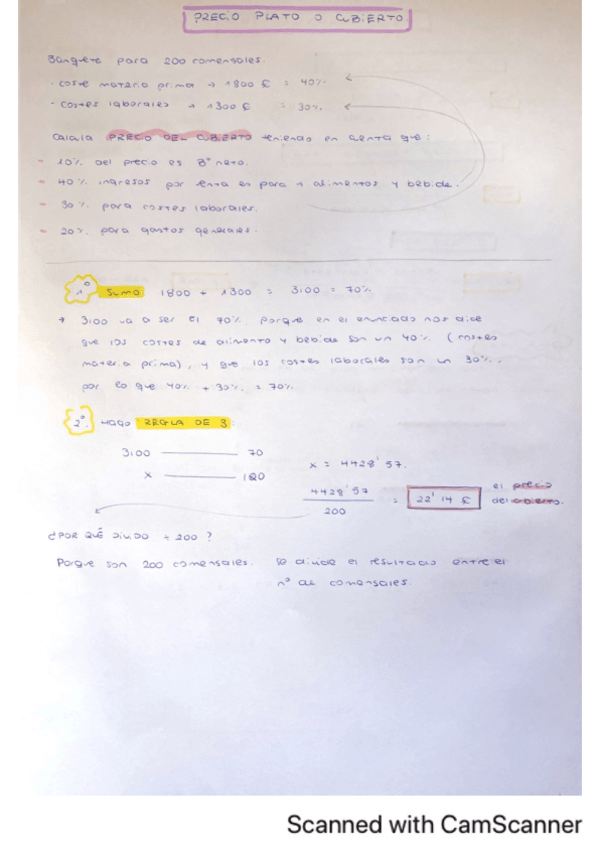 PRECIO PLATO O CUBIERTO.
Banquete para 200 comensales.
· coste materia prima → 1800 € = 40%
· costes laborales → 1300 € = 30%
Calcula PRECIO DEL CUBIERTO teniendo en cuenta que:
- 10% del precio es Bº neto.
- 40% ingresos por venta es para → alimentos y bebida.
- 30% para costes laborales.
- 20% para gastos generales.
1º SUMO: 1800 + 1300 = 3100 = 70%
→ 3100 va a ser el 70% porque en el enunciado nos dice
que los costes de alimento y bebida son un 40% (costes
materia prima), y que los costes laborales son un 30%,
por lo que 40% + 30% = 70%
2º. Hago REGLA DE 3:
3100 ——— 70
x ——— 100
x = 4428'57.
4428'57 / 200 = 22'14 € el precio del cubierto.
¿POR QUÉ DIVIDO ÷ 200?
Porque son 200 comensales. Se divide el resultado entre el
nº de comensales.
Scanned with CamScanner